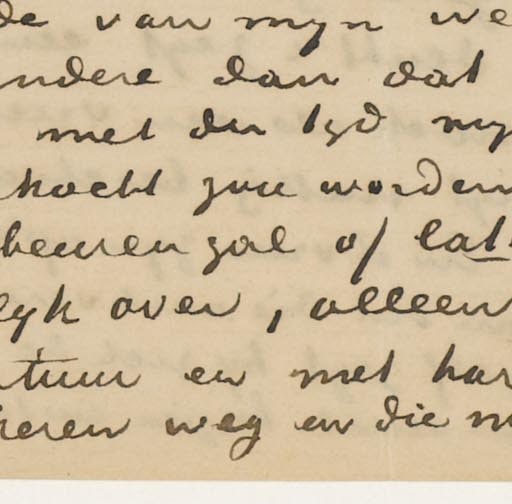 de van myn we
ndere dan dat
met den tyd my
kocht zou worden
beuren zal of lat
lyk over, alleen
tuur en met har
ieren weg en die m